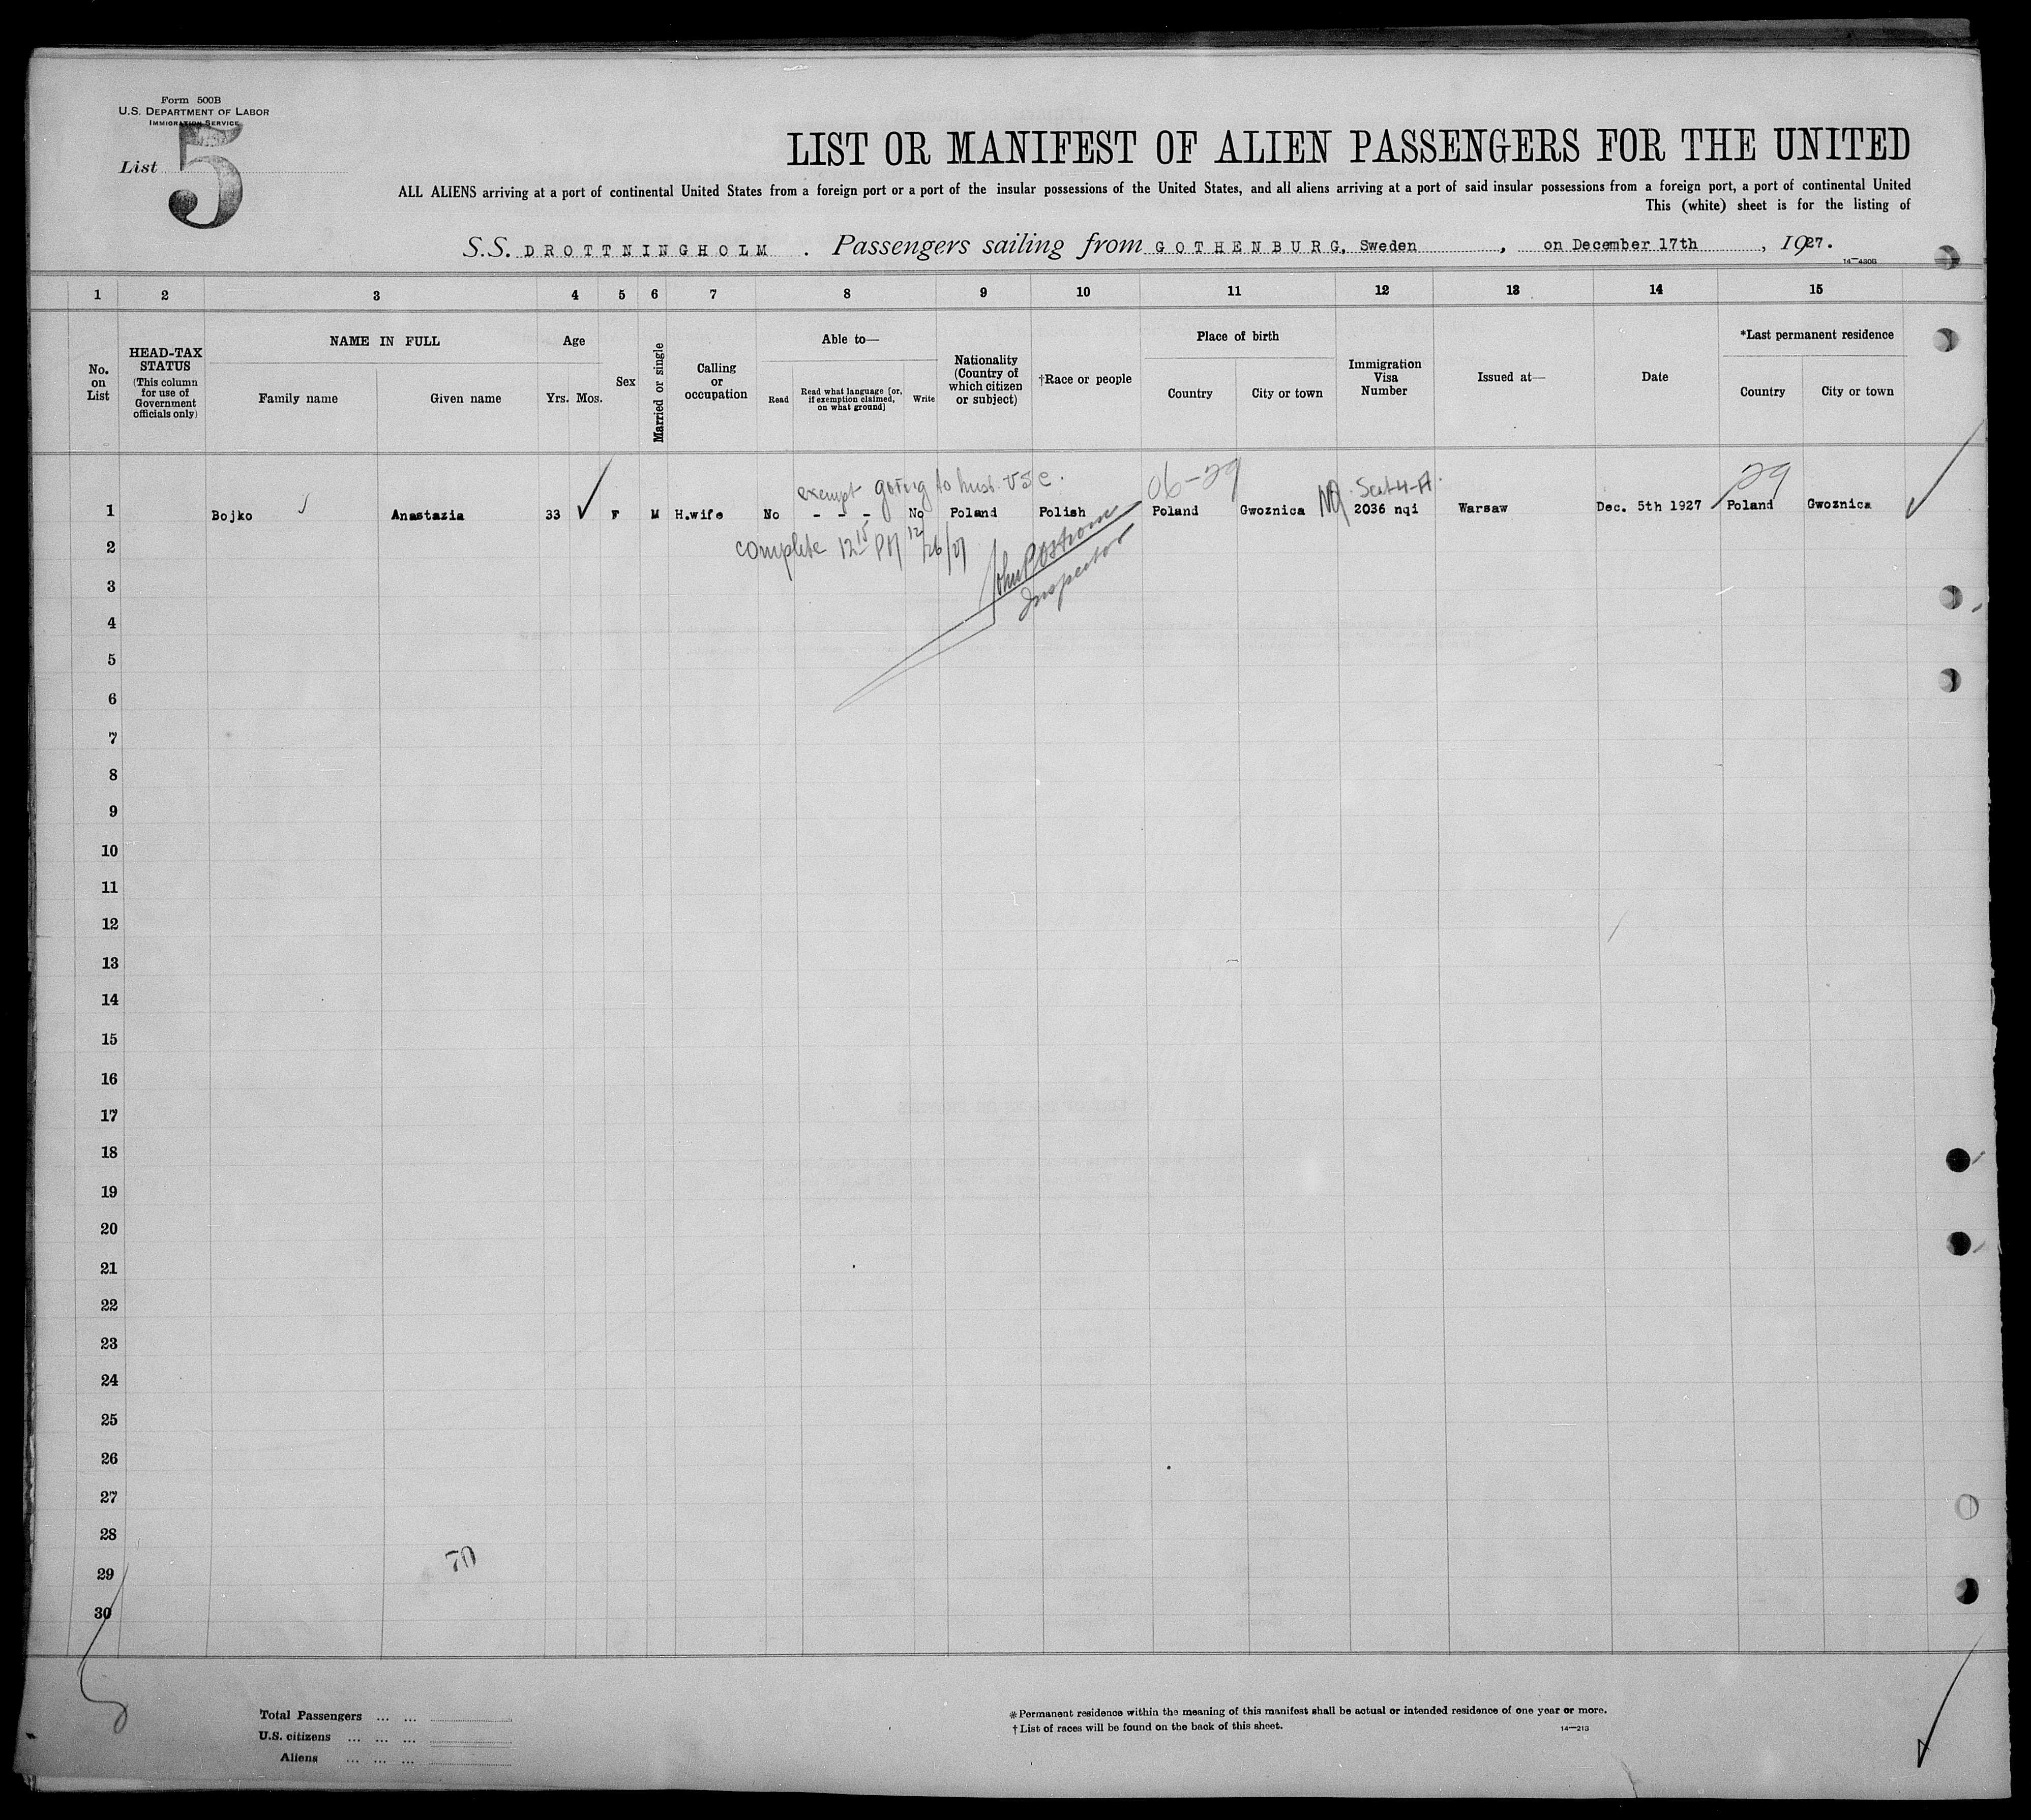 Form 500B
U.S. DEPARTMENT OF LABOR
IMMIGRATION SERVICE
List 5
LIST OR MANIFEST OF ALIEN PASSENGERS FOR THE UNITED
ALL ALIENS arriving at a port of continental United States from a foreign port or a port of the insular possessions of the United States, and all aliens arriving at a port of said insular possessions from a foreign port, a port of continental United
This (white) sheet is for the listing of
S.S. DROTTNINGHOLM . Passengers sailing from GOTHENBURG, Sweden , on December 17th , 1927.
1 2 3 4 5 6 7 8 9 10 11 12 13 14 15
No. on List
HEAD-TAX STATUS (This column for use of Government officials only)
NAME IN FULL
Family name
Given name
Age
Yrs. Mos.
Sex
Married or single
Calling or occupation
Able to—
Read
Read what language [or, if exemption claimed, on what ground]
Write
Nationality (Country of which citizen or subject)
†Race or people
Place of birth
Country
City or town
Immigration Visa Number
Issued at—
Date
*Last permanent residence
Country
City or town
exempt going to husb. USC. 06-29 29
1 Bojko Anastazia 33 F M H.wife No - - - No Poland Polish Poland Gwoznica 2036 nqi Warsaw Dec. 5th 1927 Poland Gwoznica
complete 12 15 PM 12/26/27
Inspector
2
3
4
5
6
7
8
9
10
11
12
13
14
15
16
17
18
19
20
21
22
23
24
25
26
27
28
29
30
Total Passengers ... ...
U.S. citizens ... ... ...
Aliens ... ... ...
* Permanent residence within the meaning of this manifest shall be actual or intended residence of one year or more.
† List of races will be found on the back of this sheet.
14—213